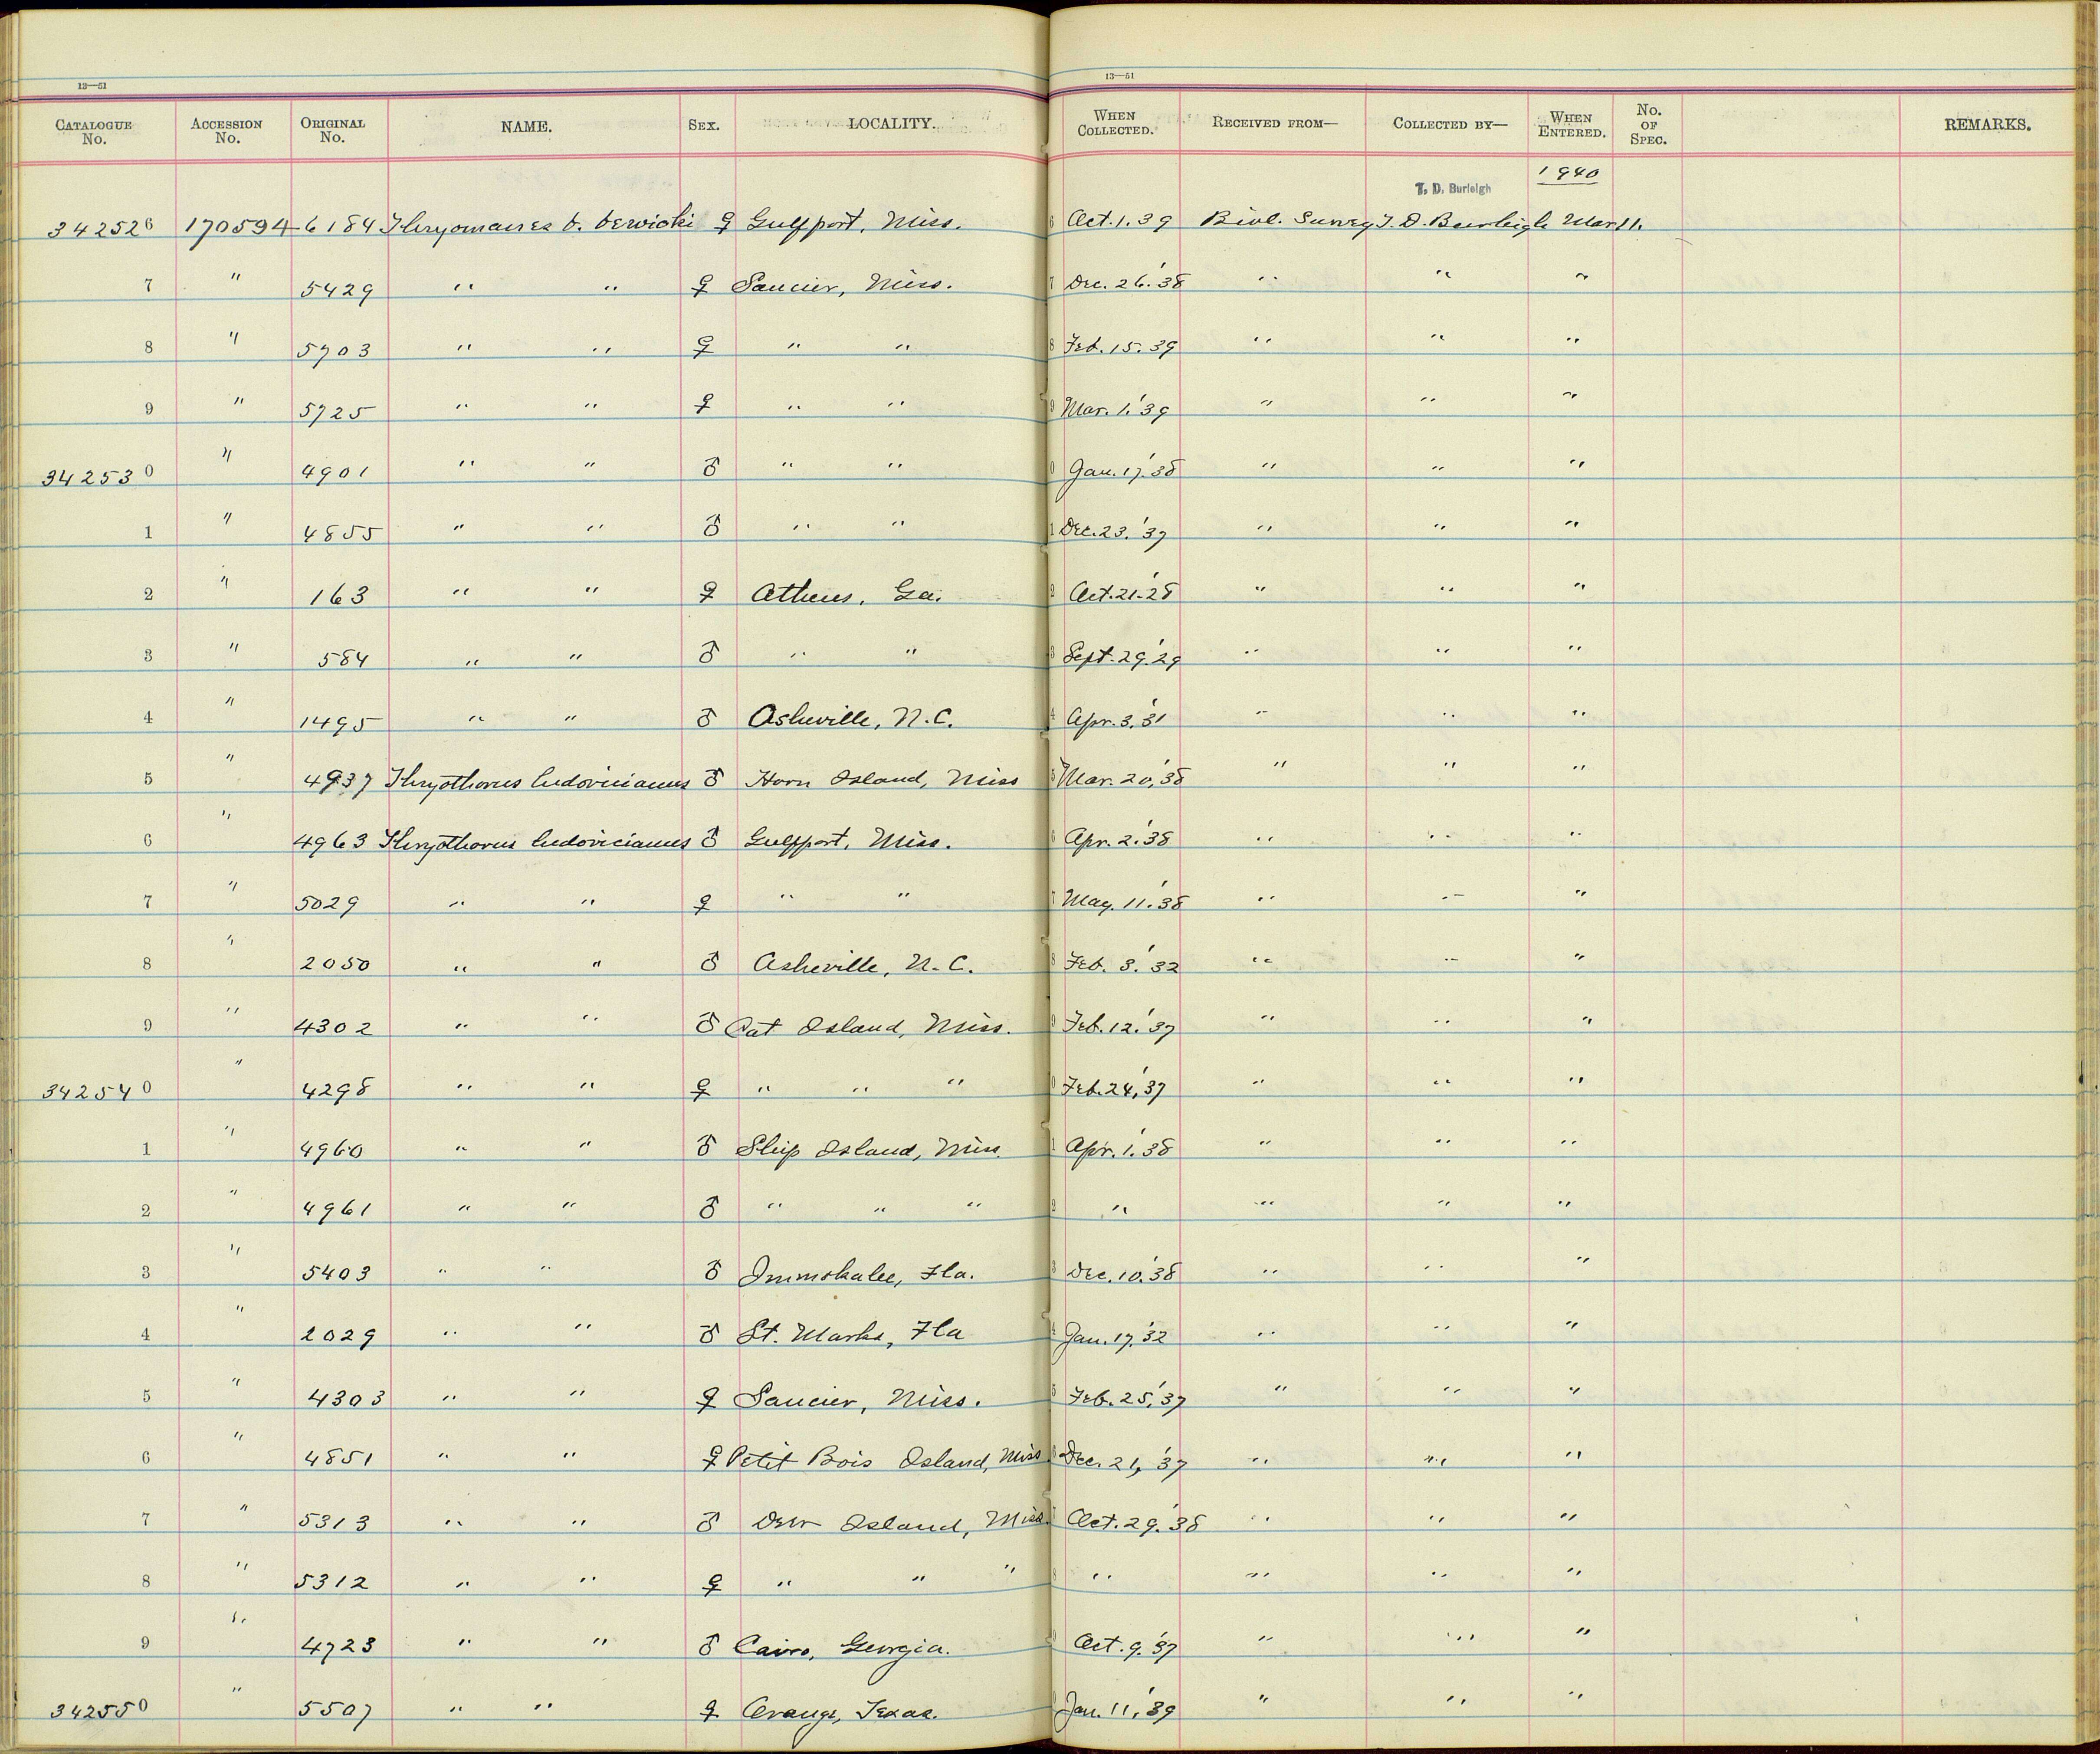 13—51 13—51
CATALOGUE No. ACCESSION No. ORIGINAL No. NAME. SEX. LOCALITY. WHEN COLLECTED. RECEIVED FROM— COLLECTED BY— WHEN ENTERED. No. OF SPEC. REMARKS.
T. D. Burleigh 1940
342526 170594 6184 Thryomanes b. bewicki ♀ Gulfport, Miss. 6 Oct. 1. 39 Biol. Survey T. D. Burleigh Mar 11.
7 " 5429 " " ♀ Saucier, Miss. 7 Dec. 26. '38 " " "
8 " 5703 " " ♀ " " 8 Feb. 15. '39 " " "
9 " 5725 " " ♀ " " 9 Mar. 1. '39 " " "
342530 " 4901 " " ♂ " " 0 Jan. 17. '38 " " "
1 " 4855 " " ♂ " " 1 Dec. 23. '37 " " "
2 " 163 " " ♀ Athens, Ga. 2 Oct. 21. '28 " " "
3 " 584 " " ♂ " " 3 Sept. 29. '29 " " "
4 " 1495 " " ♂ Asheville, N.C. 4 Apr. 3. '31 " " "
5 " 4937 Thryothorus ludovicianus ♂ Horn Island, Miss 5 Mar. 20, '38 " " "
6 " 4963 Thryothorus ludovicianus ♂ Gulfport, Miss. 6 Apr. 2. '38 " " "
7 " 5029 " " ♀ " " 7 May. 11. '38 " " "
8 " 2050 " " ♂ Asheville, N.C. 8 Feb. 3. '32 " " "
9 " 4302 " " ♂ Cat Island, Miss. 9 Feb. 12. '37 " " "
342540 " 4298 " " ♀ " " " 0 Feb. 24, '37 " " "
1 " 4960 " " ♂ Ship Island, Miss. 1 Apr. 1. '38 " " "
2 " 4961 " " ♂ " " " 2 " " " "
3 " 5403 " " ♂ Immokalee, Fla. 3 Dec. 10. '38 " " "
4 " 2029 " " ♂ St. Marks, Fla 4 Jan. 17. '32 " " "
5 " 4303 " " ♀ Saucier, Miss. 5 Feb. 25, '37 " " "
6 " 4851 " " ♀ Petit Bois Island, Miss 6 Dec. 21, '37 " " "
7 " 5313 " " ♂ Deer Island, Miss. 7 Oct. 29. '38 " " "
8 " 5312 " " ♀ " " " 8 " " " "
9 " 4723 " " ♂ Cairo, Georgia. Oct. 9. '37 " " "
342550 " 5507 " " ♀ Orange, Texas. Jan. 11, '39 " " "